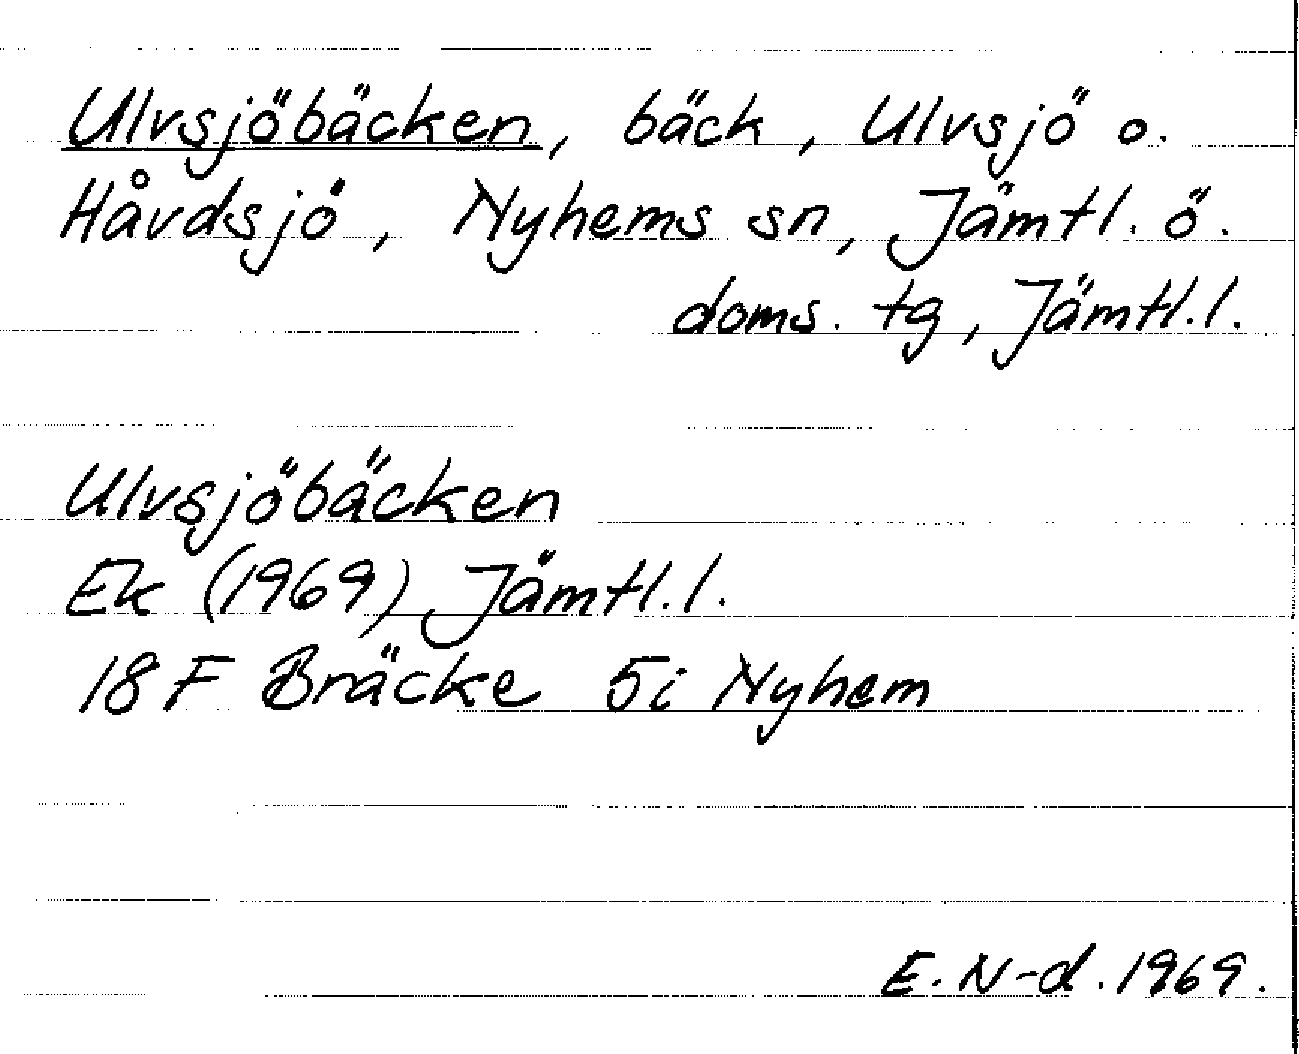 Ulvsjöbäcken, bäck, Ulvsjö o.
Håvdsjö, Nyhems sn, Jämtl. ö.
doms. tg, Jämtl.l.
Ulvsjöbäcken
Ek (1969) Jämtl.l.
18 F Bräcke 5i Nyhem
E. N-d. 1969.